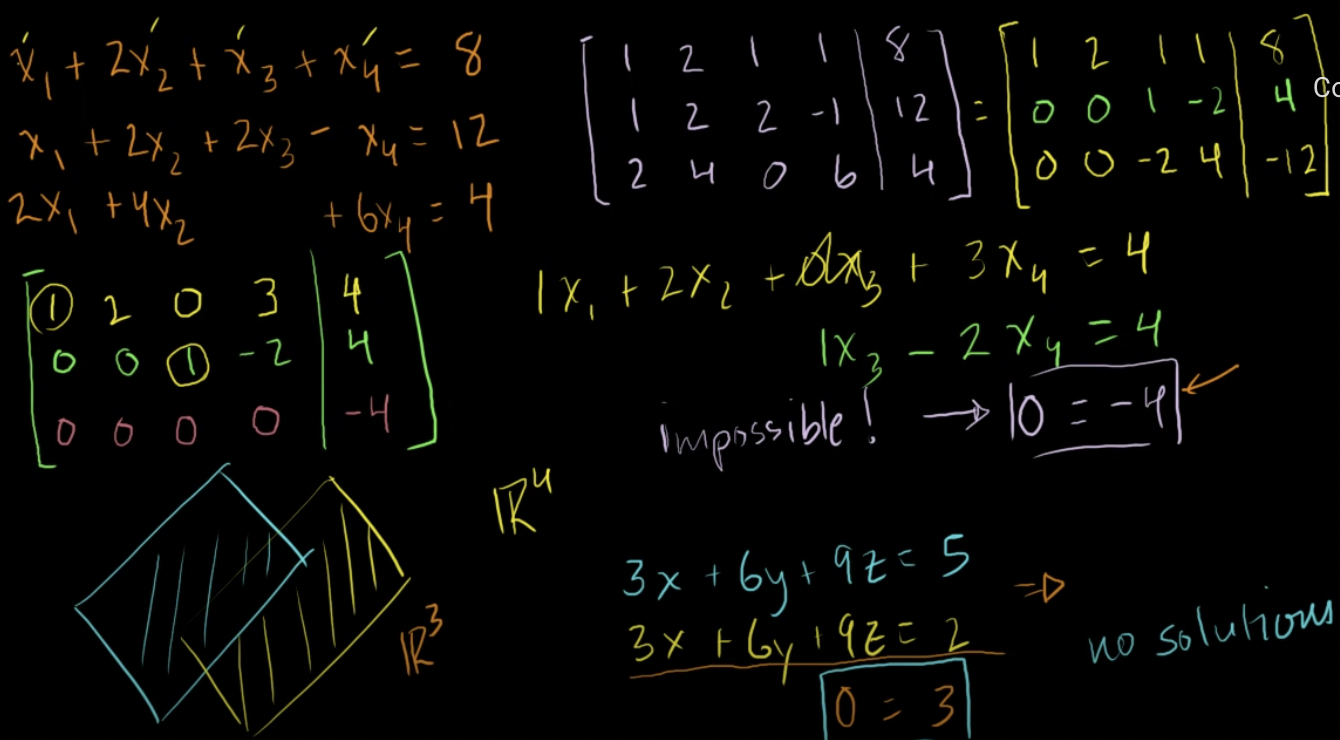 x₁ + 2x₂ + x₃ + x₄ = 8
x₁ + 2x₂ + 2x₃ - x₄ = 12
2x₁ + 4x₂ + 6x₄ = 4
[1 2 1 1 | 8] = [1 2 1 1 | 8]
[1 2 2 -1 | 12] = [0 0 1 -2 | 4]
[2 4 0 6 | 4] = [0 0 -2 4 | -12]
Co
[1 2 0 3 | 4]
[0 0 1 -2 | 4]
[0 0 0 0 | -4]
1x₁ + 2x₂ + 0x₃ + 3x₄ = 4
1x₃ - 2x₄ = 4
impossible! → 0 = -4
ℝ⁴
ℝ³
3x + 6y + 9z = 5
3x + 6y + 9z = 2
0 = 3
⇒ no solutions